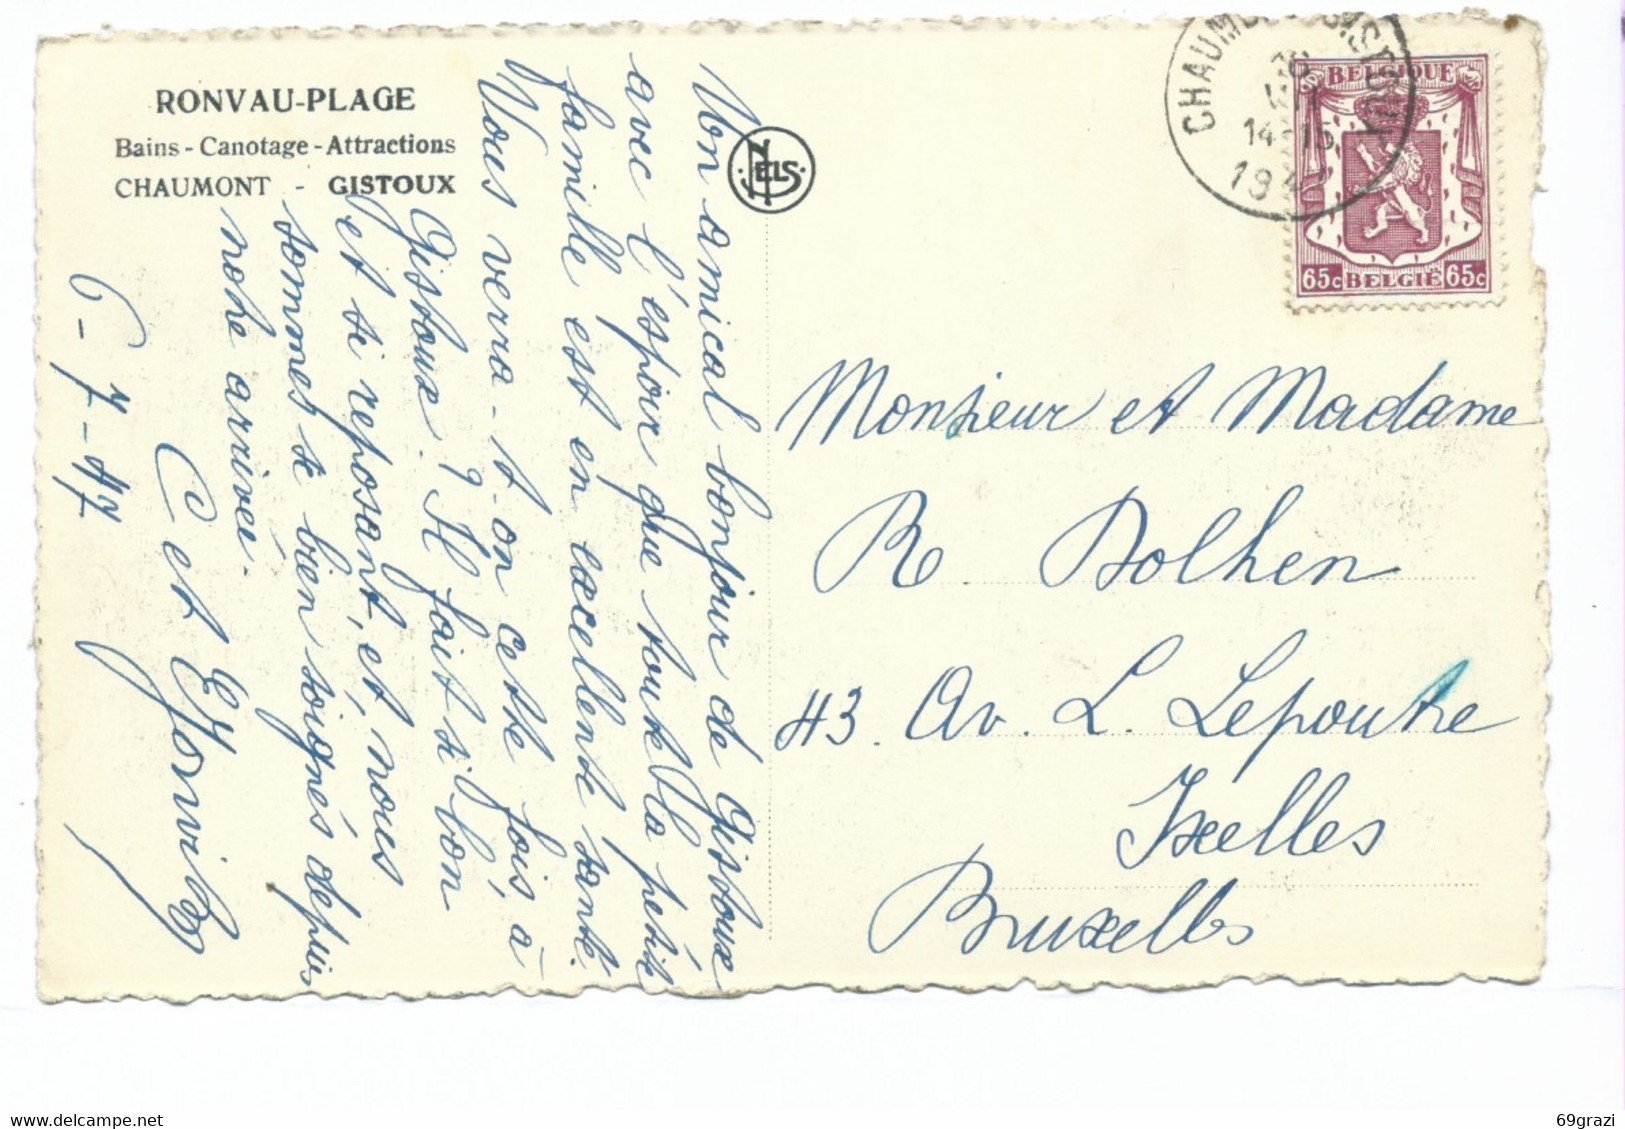 RONVAU-PLAGE
Bains - Canotage - Attractions
CHAUMONT - GISTOUX
NELS
BELGIQUE
65c BELGIE 65c
14-15
Un amical bonjour de Gistoux
avec l'espoir que toute la petite
famille est en excellente santé.
Vous verra-t-on cette fois, à
Gistoux ? Il fait si bon
et si reposant, et nous
sommes si bien soignés depuis
notre arrivée.
C et
6-7-47
Monsieur et Madame
R. Dolhen
43. Av. L. Lepoutre
Ixelles
Bruxelles
69grazi